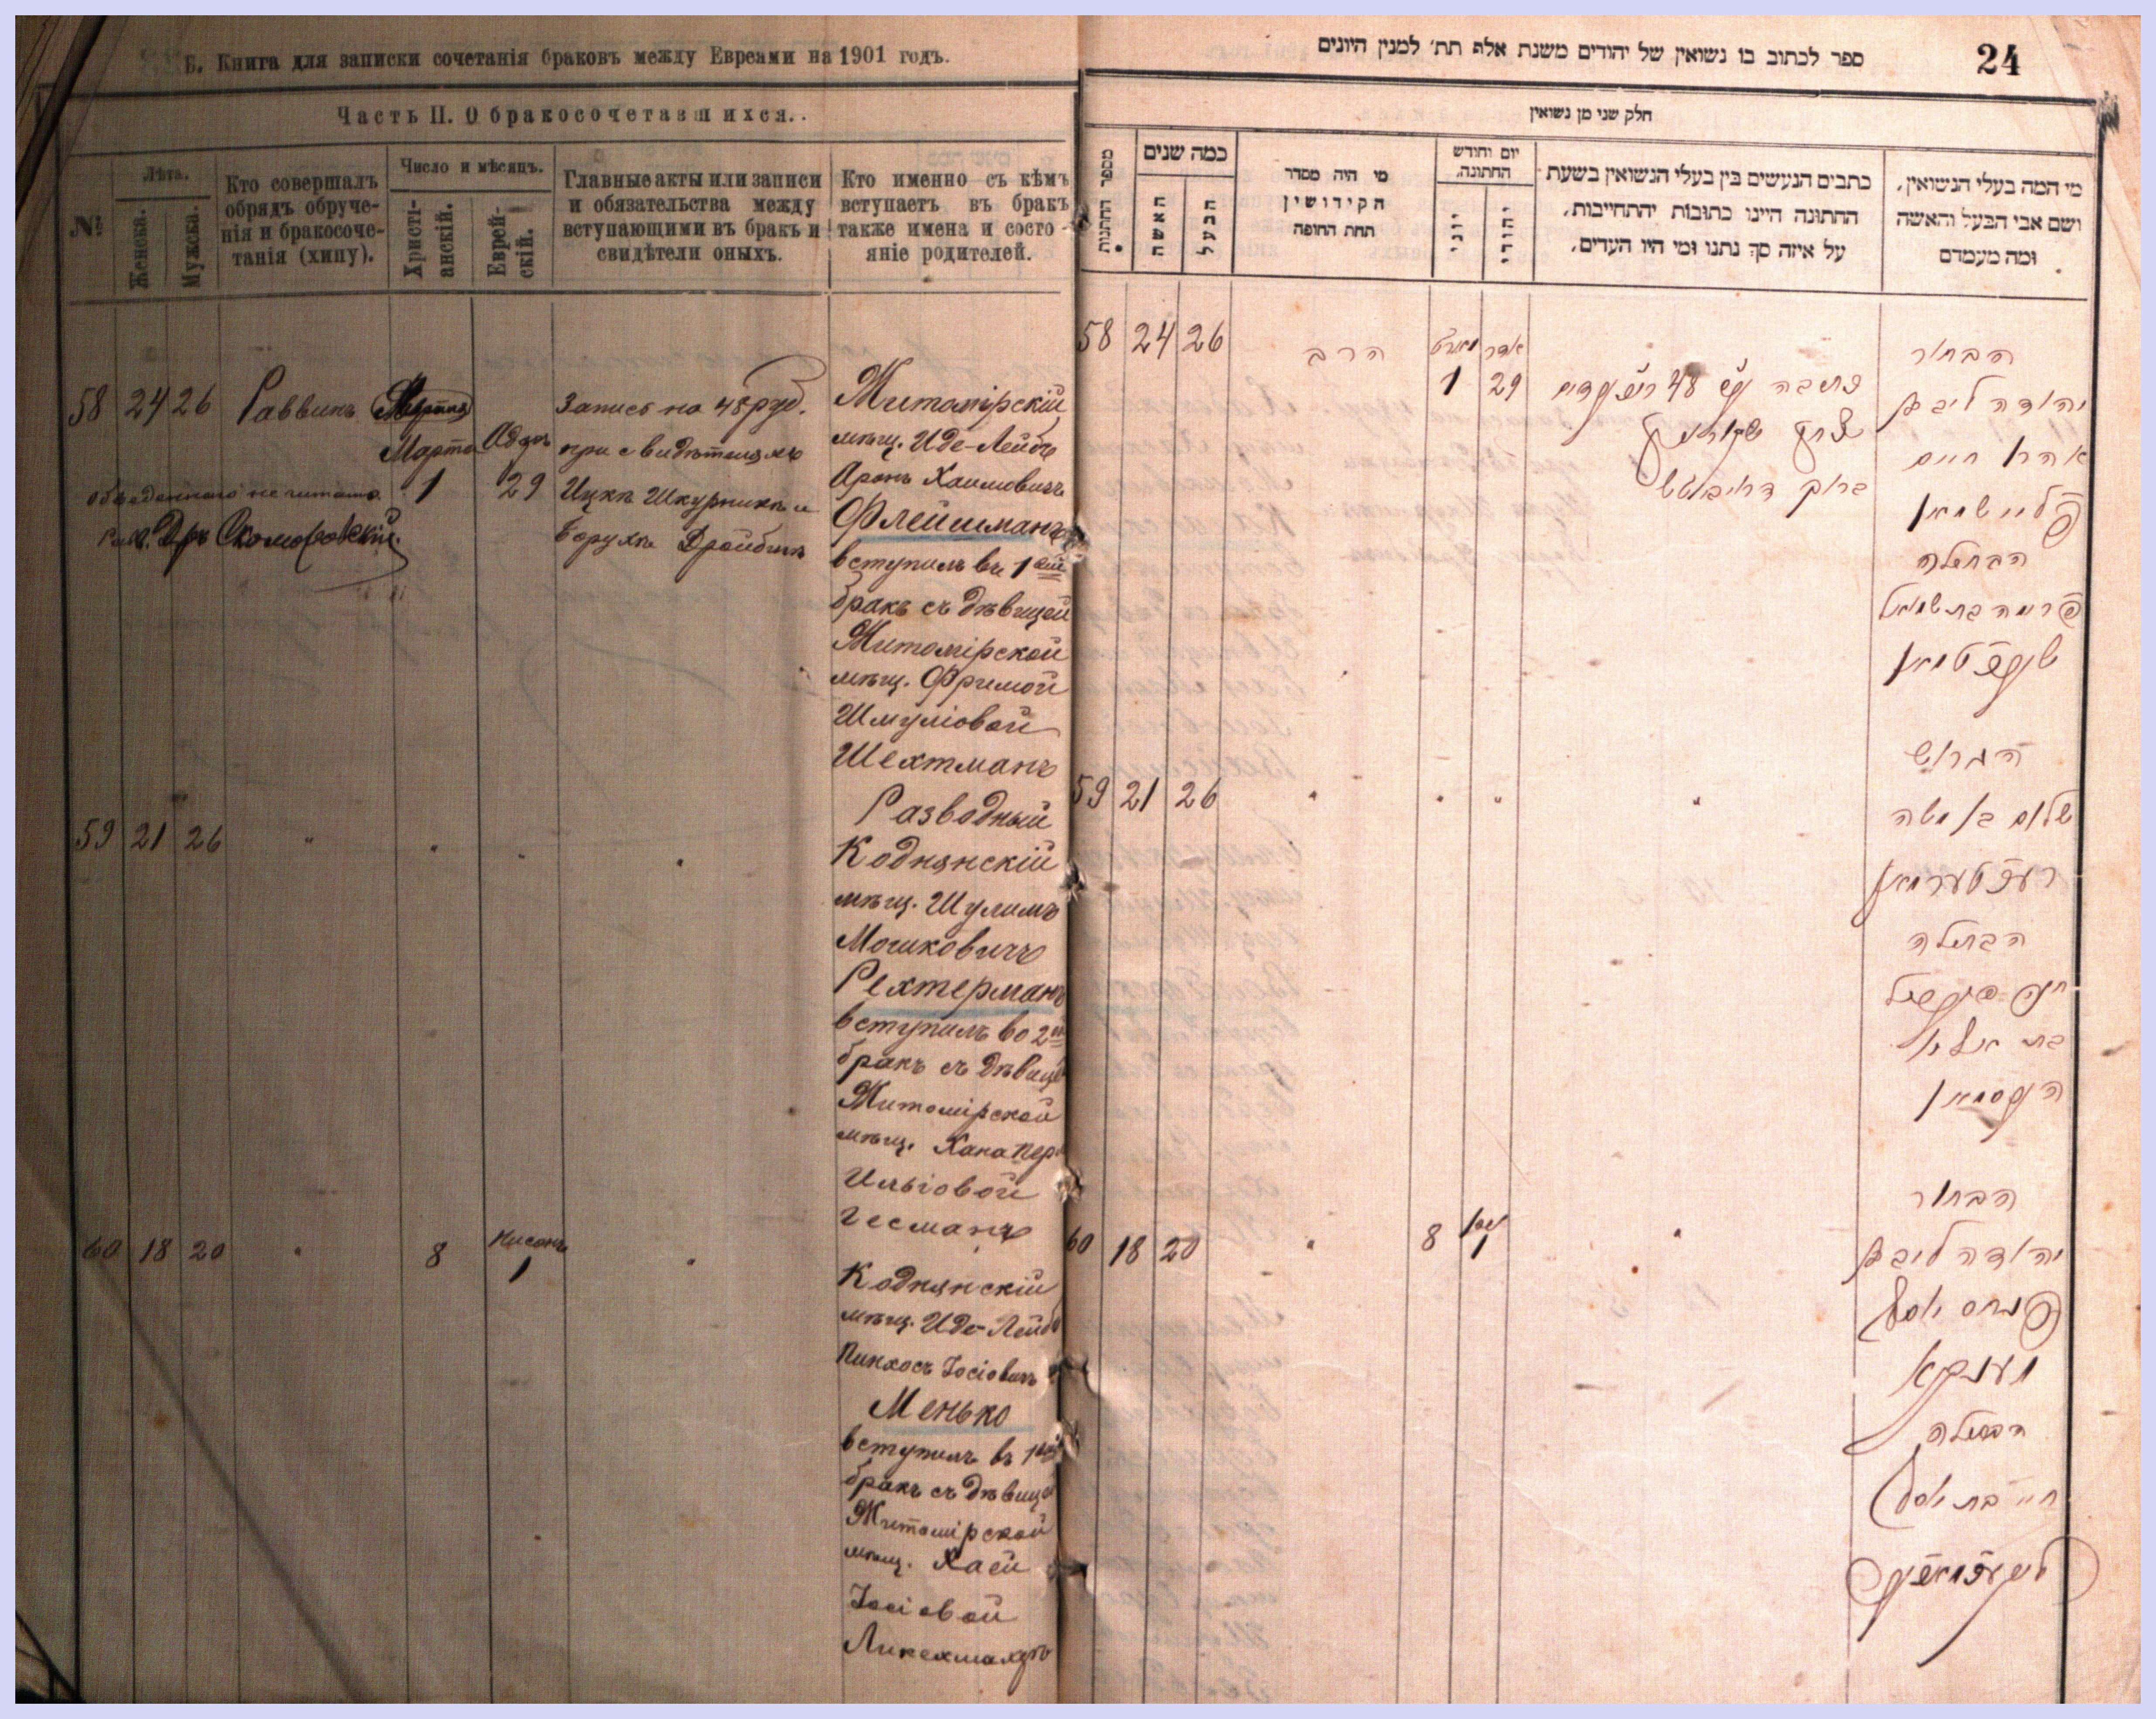 Б. Книга для записки сочетанія браковъ между Евреями на 1901 годъ.
Часть II. О бракосочетавшихся.
№
Лѣта.
Женска.
Мужска.
Кто совершалъ
обрядъ обруче-
нія и бракосоче-
танія (хипу).
Число и мѣсяцъ.
Христі-
анскій.
Еврей-
скій.
Главные акты или записи
и обязательства между
вступающими въ бракъ и
свидѣтели оныхъ.
Кто именно съ кѣмъ
вступаетъ въ бракъ
также имена и состо-
яніе родителей.
58 24 26 Раввинъ
Марта 1
Адаръ 29
обведеннаго не читать.
Рав. Др. Скоморовскій.
Запись на 48 руб.
при свидѣтеляхъ
Ицкъ Шкурникъ и
Борухъ Дройбинъ
Житомірскій
мѣщ. Иде-Лейбъ
Аронъ Хаимовичъ
Флейшманъ
вступилъ въ 1ый
бракъ съ дѣвицей
Житомірской
мѣщ. Фримой
Шмуліовой
Шехтманъ
59 21 26 " " " "
Разводный
Коднянскій
мѣщ. Шулимъ
Мошковичъ
Рехтерманъ
вступилъ во 2ой
бракъ съ дѣвицей
Житомірской
мѣщ. Хана
Ильіовой
Гесманъ
60 18 20 " 8
Нисонъ 1 "
Коднянскій
мѣщ. Иде-Лейбъ
Пинхосъ Іосіовичъ
Менько
вступилъ въ 1ый
бракъ съ дѣвицей
Житомірской
мѣщ. Хаей
Іосіовой
24
ספר לכתוב בו נשואין של יהודים משנת אלף תת׳ למנין היונים
חלק שני מן נשואין
מספר החתנות
כמה שנים
האשה
הבעל
מי היה מסדר
הקידושין
תחת החופה
יום וחודש
החתונה,
יוני
יהודי
כתבים הנעשים בין בעלי הנשואין בשעת
החתונה היינו כתובות יהתחייבות,
על איזה סך נתנו ומי היו העדים,
מי המה בעלי הנשואין,
ושם אבי הבעל והאשה
ומה מעמדם
58 24 26 הרב
מארט 1
אדר 29
הבחור
יהודה ליב בן
אהרן חיים
פליישמאן
הבתולה
פרימה בת שמואל
שעכטמאן
59 21 26 " " " "
הגרוש
שלום בן משה
רעכטערמאן
הבתולה
60 18 20 " 8
ניסן 1 "
הבחור
יהודה ליב בן
פנחס יוסף
מענקא
הבתולה
חיי׳ בת יוסף